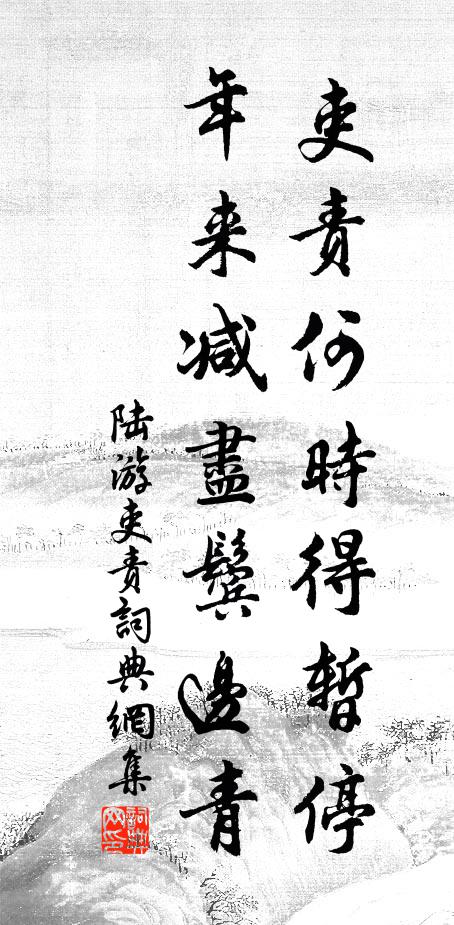 吏責何時得暫停
年来减盡鬢邊青
陆游吏責詞典網集